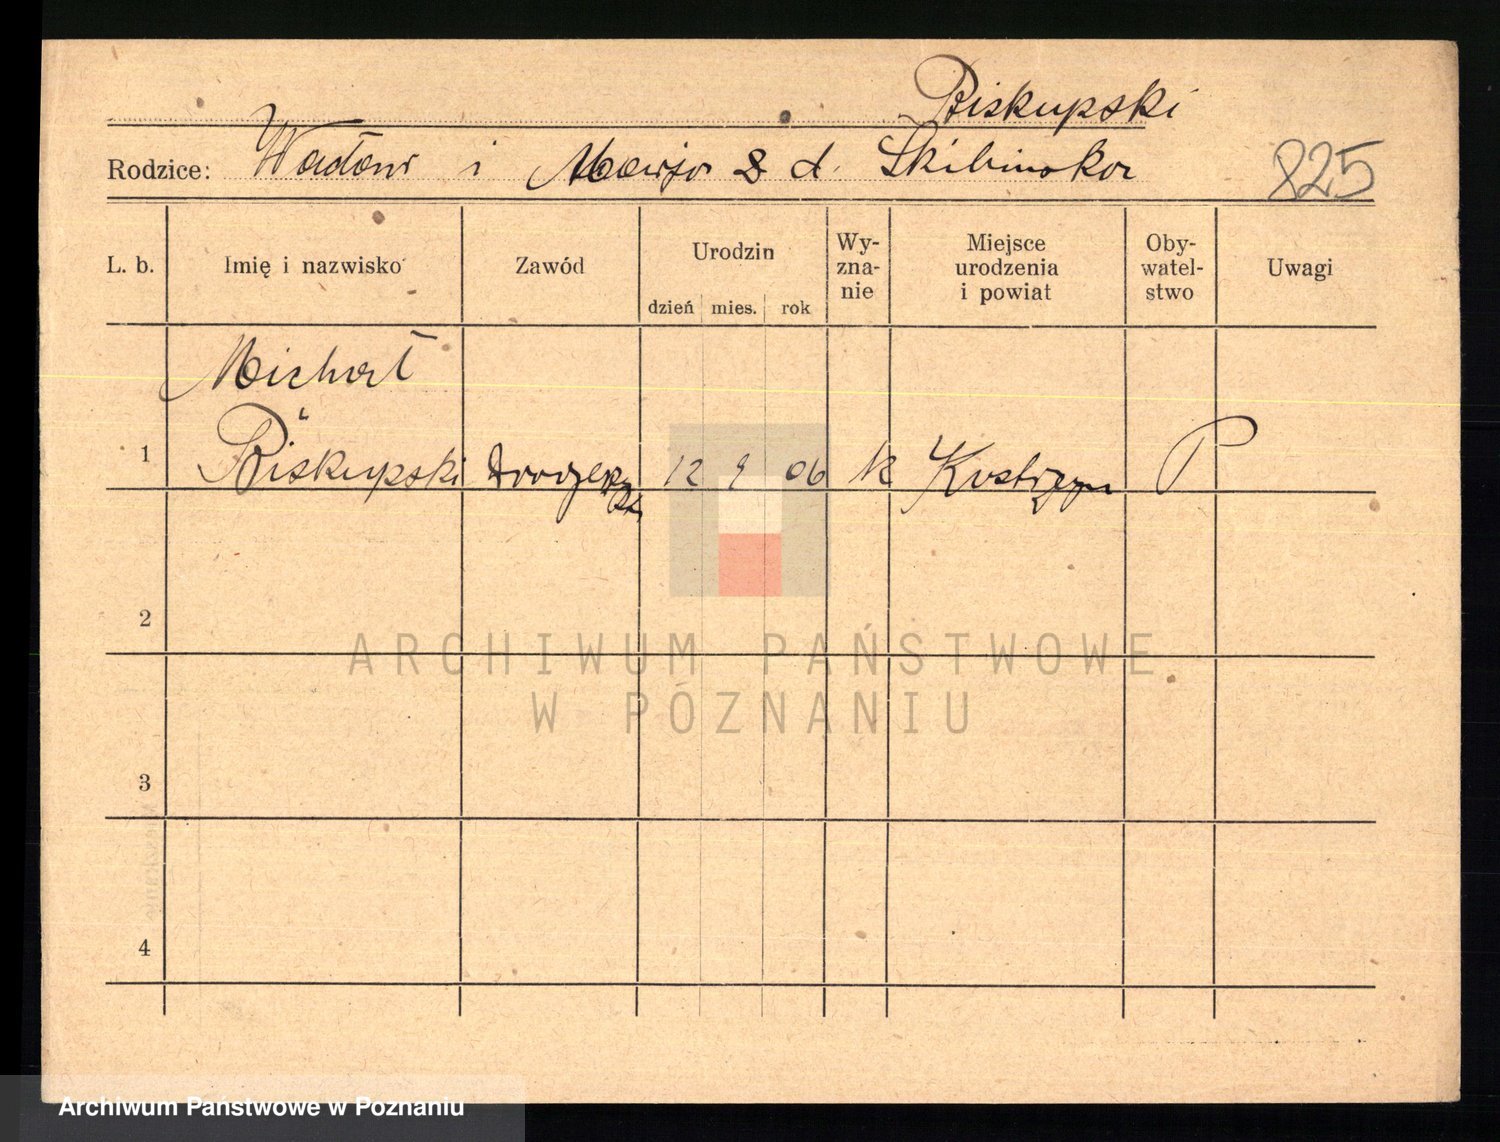 Biskupski
Rodzice: Wacław i Marja z d. Skibinska 825
L. b. Imię i nazwisko Zawód Urodzin dzień mies. rok Wy-zna-nie Miejsce urodzenia i powiat Oby-watel-stwo Uwagi
Michał
1 Biskupski 12 9 06 k Kostrzyn P
2
3
4
ARCHIWUM PAŃSTWOWE
W POZNANIU
Archiwum Państwowe w Poznaniu